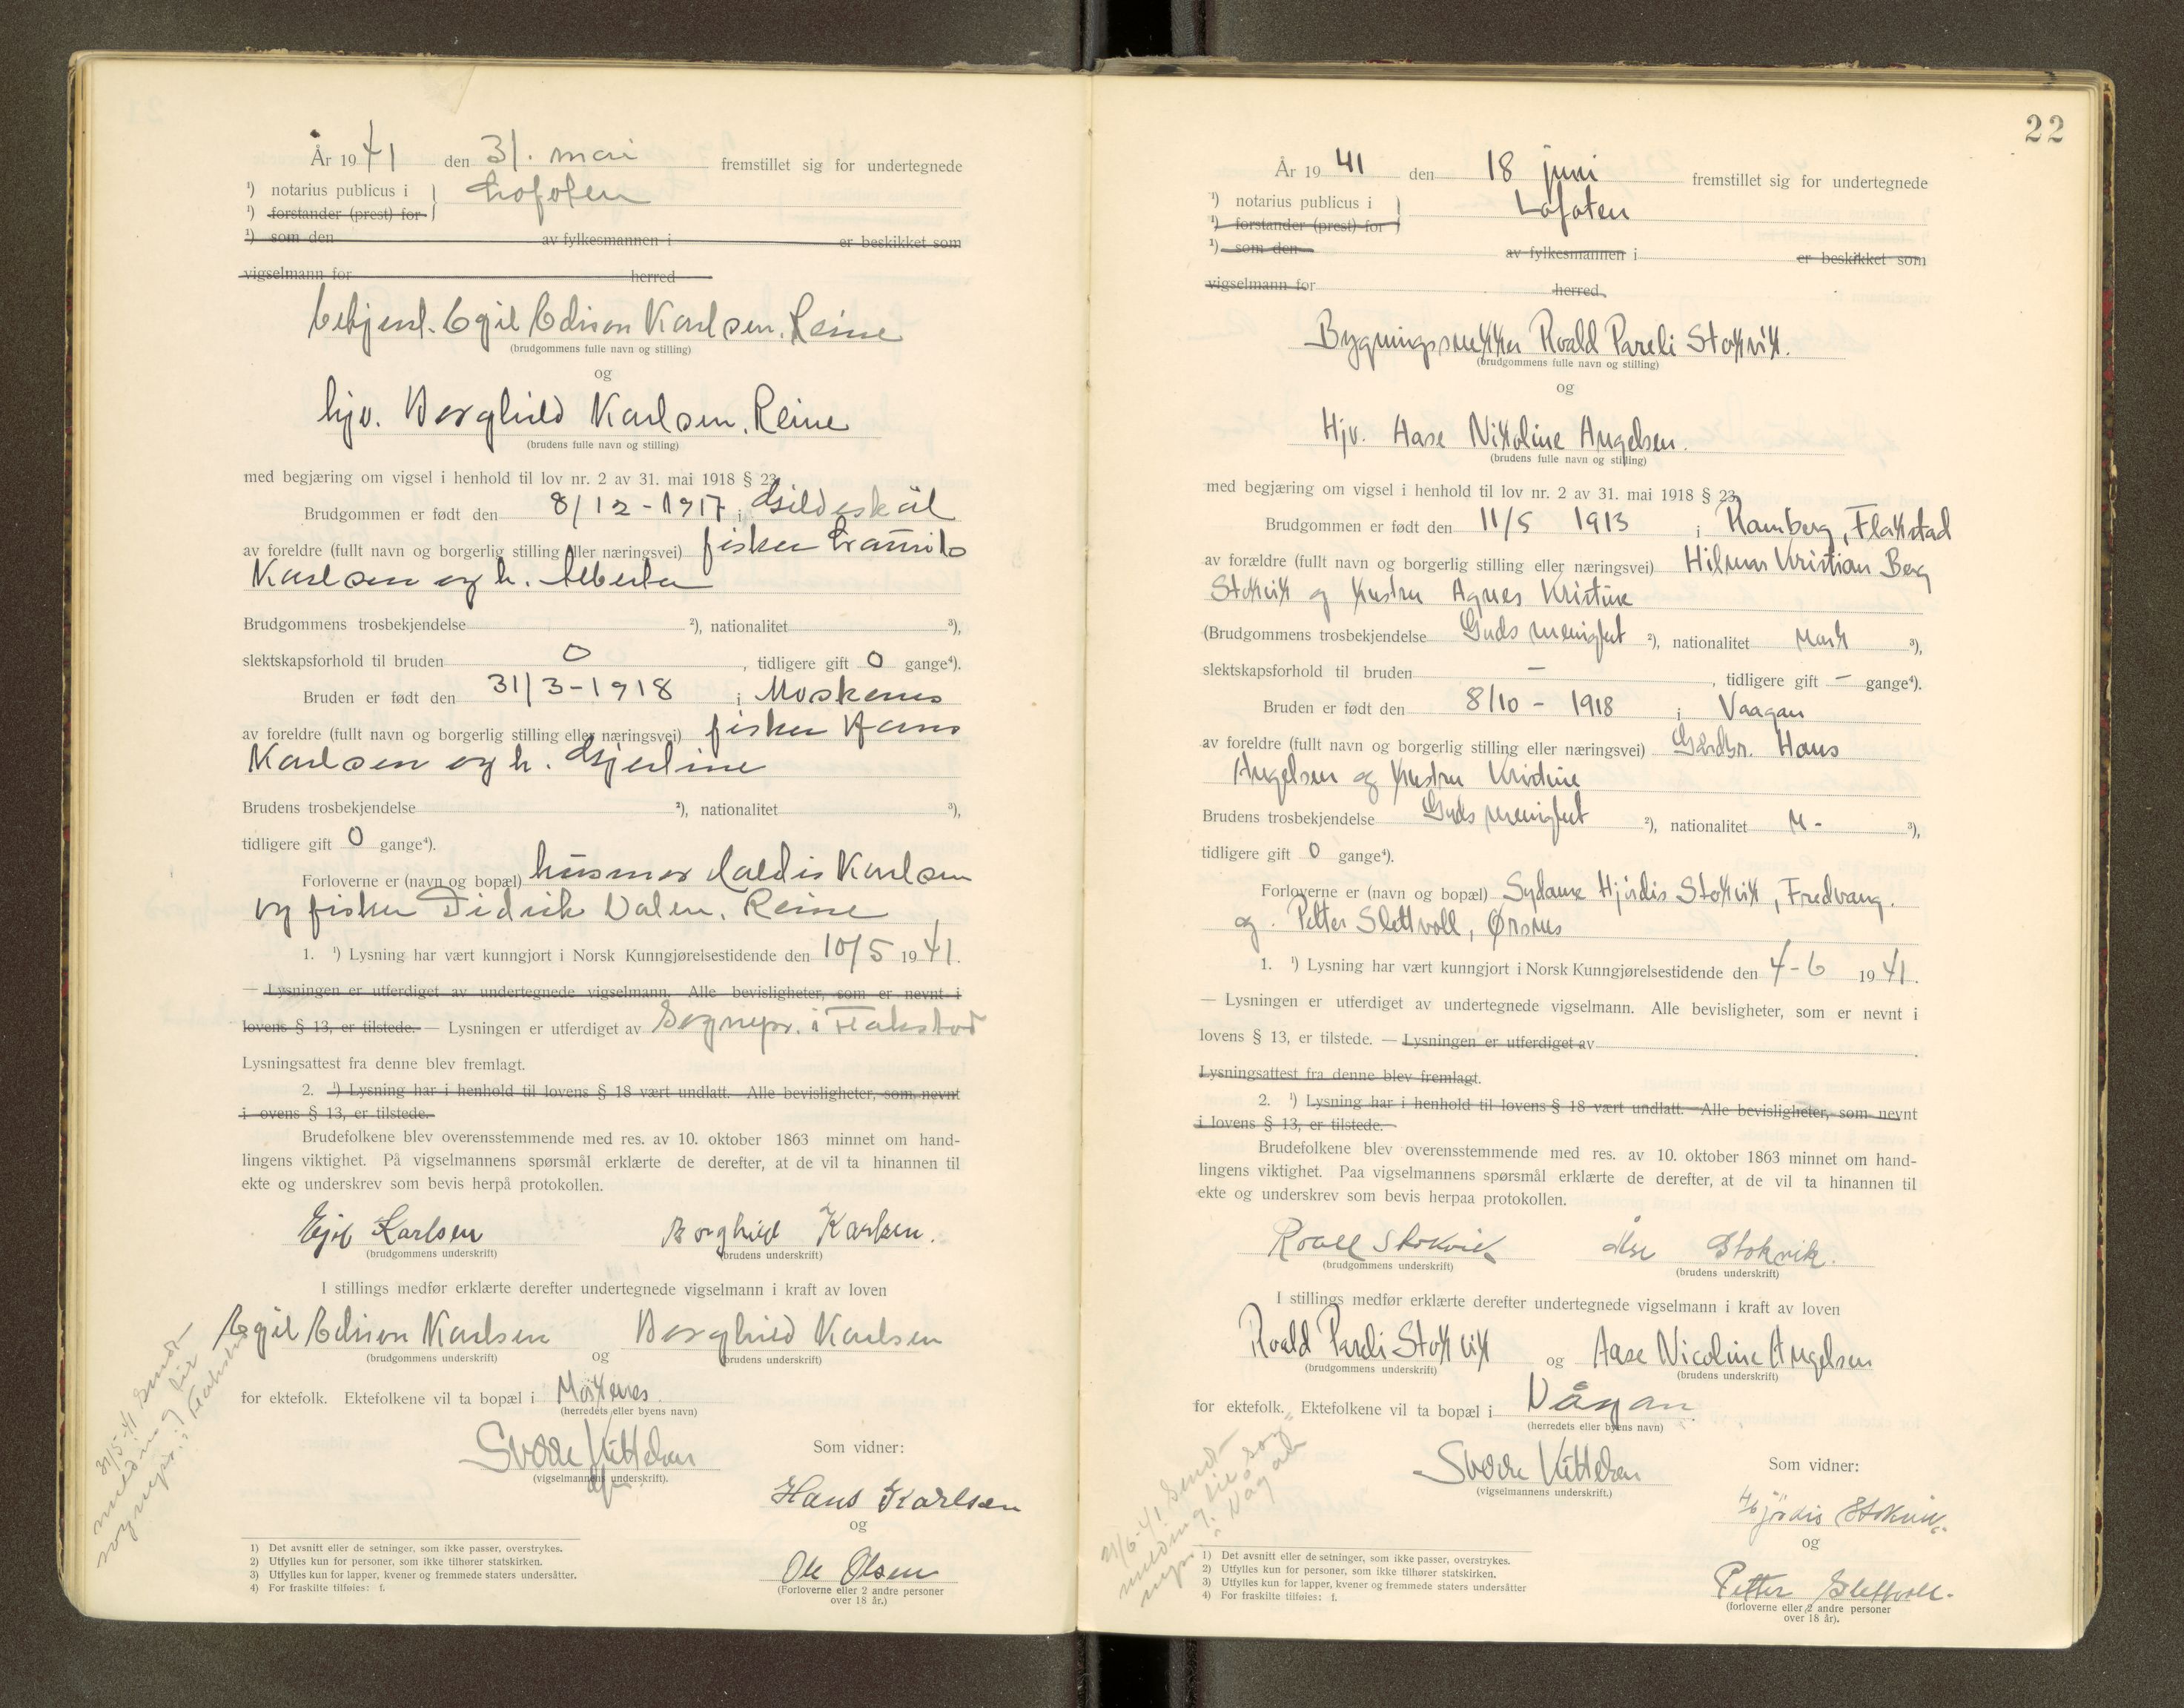 År 1941 den 31. mai fremstillet sig for undertegnede
¹) notarius publicus i Lofoten
¹) forstander (prest) for
¹) som den av fylkesmannen i er beskikket som
vigselmann for herred
Egil Edison Karlsen, Reine
(brudgommens fulle navn og stilling)
og
hjv. Borghild Karlsen, Reine
(brudens fulle navn og stilling)
med begjæring om vigsel i henhold til lov nr. 2 av 31. mai 1918 § 23.
Brudgommen er født den 8/12-1917 i Gildeskål
av foreldre (fullt navn og borgerlig stilling eller næringsvei) fisker
Karlsen og h. Alberta
Brudgommens trosbekjendelse ²), nationalitet ³),
slektskapsforhold til bruden 0, tidligere gift 0 gange⁴).
Bruden er født den 31/3-1918 i Moskenes
av foreldre (fullt navn og borgerlig stilling eller næringsvei) fisker Hans
Karlsen og h. Gjertine
Brudens trosbekjendelse ²), nationalitet ³),
tidligere gift 0 gange⁴).
Forloverne er (navn og bopæl) husmor Valdis Karlsen
og fisker Didrik Dalen, Reine
1. ¹) Lysning har vært kunngjort i Norsk Kunngjørelsestidende den 10/5 1941.
— Lysningen er utferdiget av undertegnede vigselmann. Alle bevisligheter, som er nevnt i
lovens § 13, er tilstede. — Lysningen er utferdiget av Sognepr. i Flakstad
Lysningsattest fra denne blev fremlagt.
2. ¹) Lysning har i henhold til lovens § 18 vært undlatt. Alle bevisligheter, som nevnt
i ovens § 13, er tilstede.
Brudefolkene blev overensstemmende med res. av 10. oktober 1863 minnet om hand-
lingens viktighet. På vigselmannens spørsmål erklærte de derefter, at de vil ta hinannen til
ekte og underskrev som bevis herpå protokollen.
Egil Karlsen Borghild Karlsen.
(brudgommens underskrift) (brudens underskrift)
I stillings medfør erklærte derefter undertegnede vigselmann i kraft av loven
Egil Edison Karlsen og Borghild Karlsen
(brudgommens underskrift) (brudens underskrift)
for ektefolk. Ektefolkene vil ta bopæl i Moskenes.
(herredets eller byens navn)
Sverre Kittelsen
(vigselmannens underskrift).
Som vidner:
Hans Karlsen
og
Ole Olsen
(Forloverne eller 2 andre personer
over 18 år.)
31/5-41 sendt
melding til
sognepr. i Flakstad
1) Det avsnitt eller de setninger, som ikke passer, overstrykes.
2) Utfylles kun for personer, som ikke tilhører statskirken.
3) Utfylles kun for lapper, kvener og fremmede staters undersåtter.
4) For fraskilte tilføies: f.
22
År 1941 den 18 juni fremstillet sig for undertegnede
¹) notarius publicus i Lofoten
¹) forstander (prest) for
¹) som den av fylkesmannen i er beskikket som
vigselmann for herred
Bygningssnekker Roald Pareli Stokvik.
(brudgommens fulle navn og stilling)
og
Hjv. Aase Nikoline Angelsen.
(brudens fulle navn og stilling)
med begjæring om vigsel i henhold til lov nr. 2 av 31. mai 1918 § 23.
Brudgommen er født den 11/5 1913 i Ramberg, Flakstad
av forældre (fullt navn og borgerlig stilling eller næringsvei) Hilmar Kristian Berg
Stokvik og hustru Agnes Kristine
(Brudgommens trosbekjendelse Guds menighet ²), nationalitet norsk ³),
slektskapsforhold til bruden —, tidligere gift — gange⁴).
Bruden er født den 8/10 - 1918 i Vaagan
av foreldre (fullt navn og borgerlig stilling eller næringsvei) Gårdbr. Hans
Angelsen og hustru Kristine
Brudens trosbekjendelse Guds menighet ²), nationalitet n - ³),
tidligere gift 0 gange⁴).
Forloverne er (navn og bopæl) Sydame Hjördis Stokvik, Fredvang.
og. Petter Slettvoll, Ørsnes
1. ¹) Lysning har vært kunngjort i Norsk Kunngjørelsestidende den 4-6 1941.
— Lysningen er utferdiget av undertegnede vigselmann. Alle bevisligheter, som er nevnt i
lovens § 13, er tilstede. — Lysningen er utferdiget av .
Lysningsattest fra denne blev fremlagt.
2. ¹) Lysning har i henhold til lovens § 18 vært undlatt. Alle bevisligheter, som nevnt
i lovens § 13, er tilstede.
Brudefolkene blev overensstemmende med res. av 10. oktober 1863 minnet om hand-
lingens viktighet. Paa vigselmannens spørsmål erklærte de derefter, at de vil ta hinannen til
ekte og underskrev som bevis herpaa protokollen.
Roald Stokvik Åse Stokvik.
(brudgommens underskrift) (brudens underskrift)
I stillings medfør erklærte derefter undertegnede vigselmann i kraft av loven
Roald Pareli Stokvik og Aase Nicoline Angelsen
(brudgommens underskrift) (brudens underskrift)
for ektefolk. Ektefolkene vil ta bopæl i Vågan
(herredets eller byens navn)
Sverre Kittelsen
(vigselmannens underskrift.)
Som vidner:
Hjördis Stokvik.
og
Petter Slettvoll.
(forloverne eller 2 andre personer
over 18 år).
21/6-41 sendt
melding til sog-
nepr. i Vågan
1) Det avsnitt eller de setninger, som ikke passer, overstrykes.
2) Utfylles kun for personer, som ikke tilhører statskirken.
3) Utfylles kun for lapper, kvener og fremmede staters undersåtter
4) For fraskilte tilføies: f.